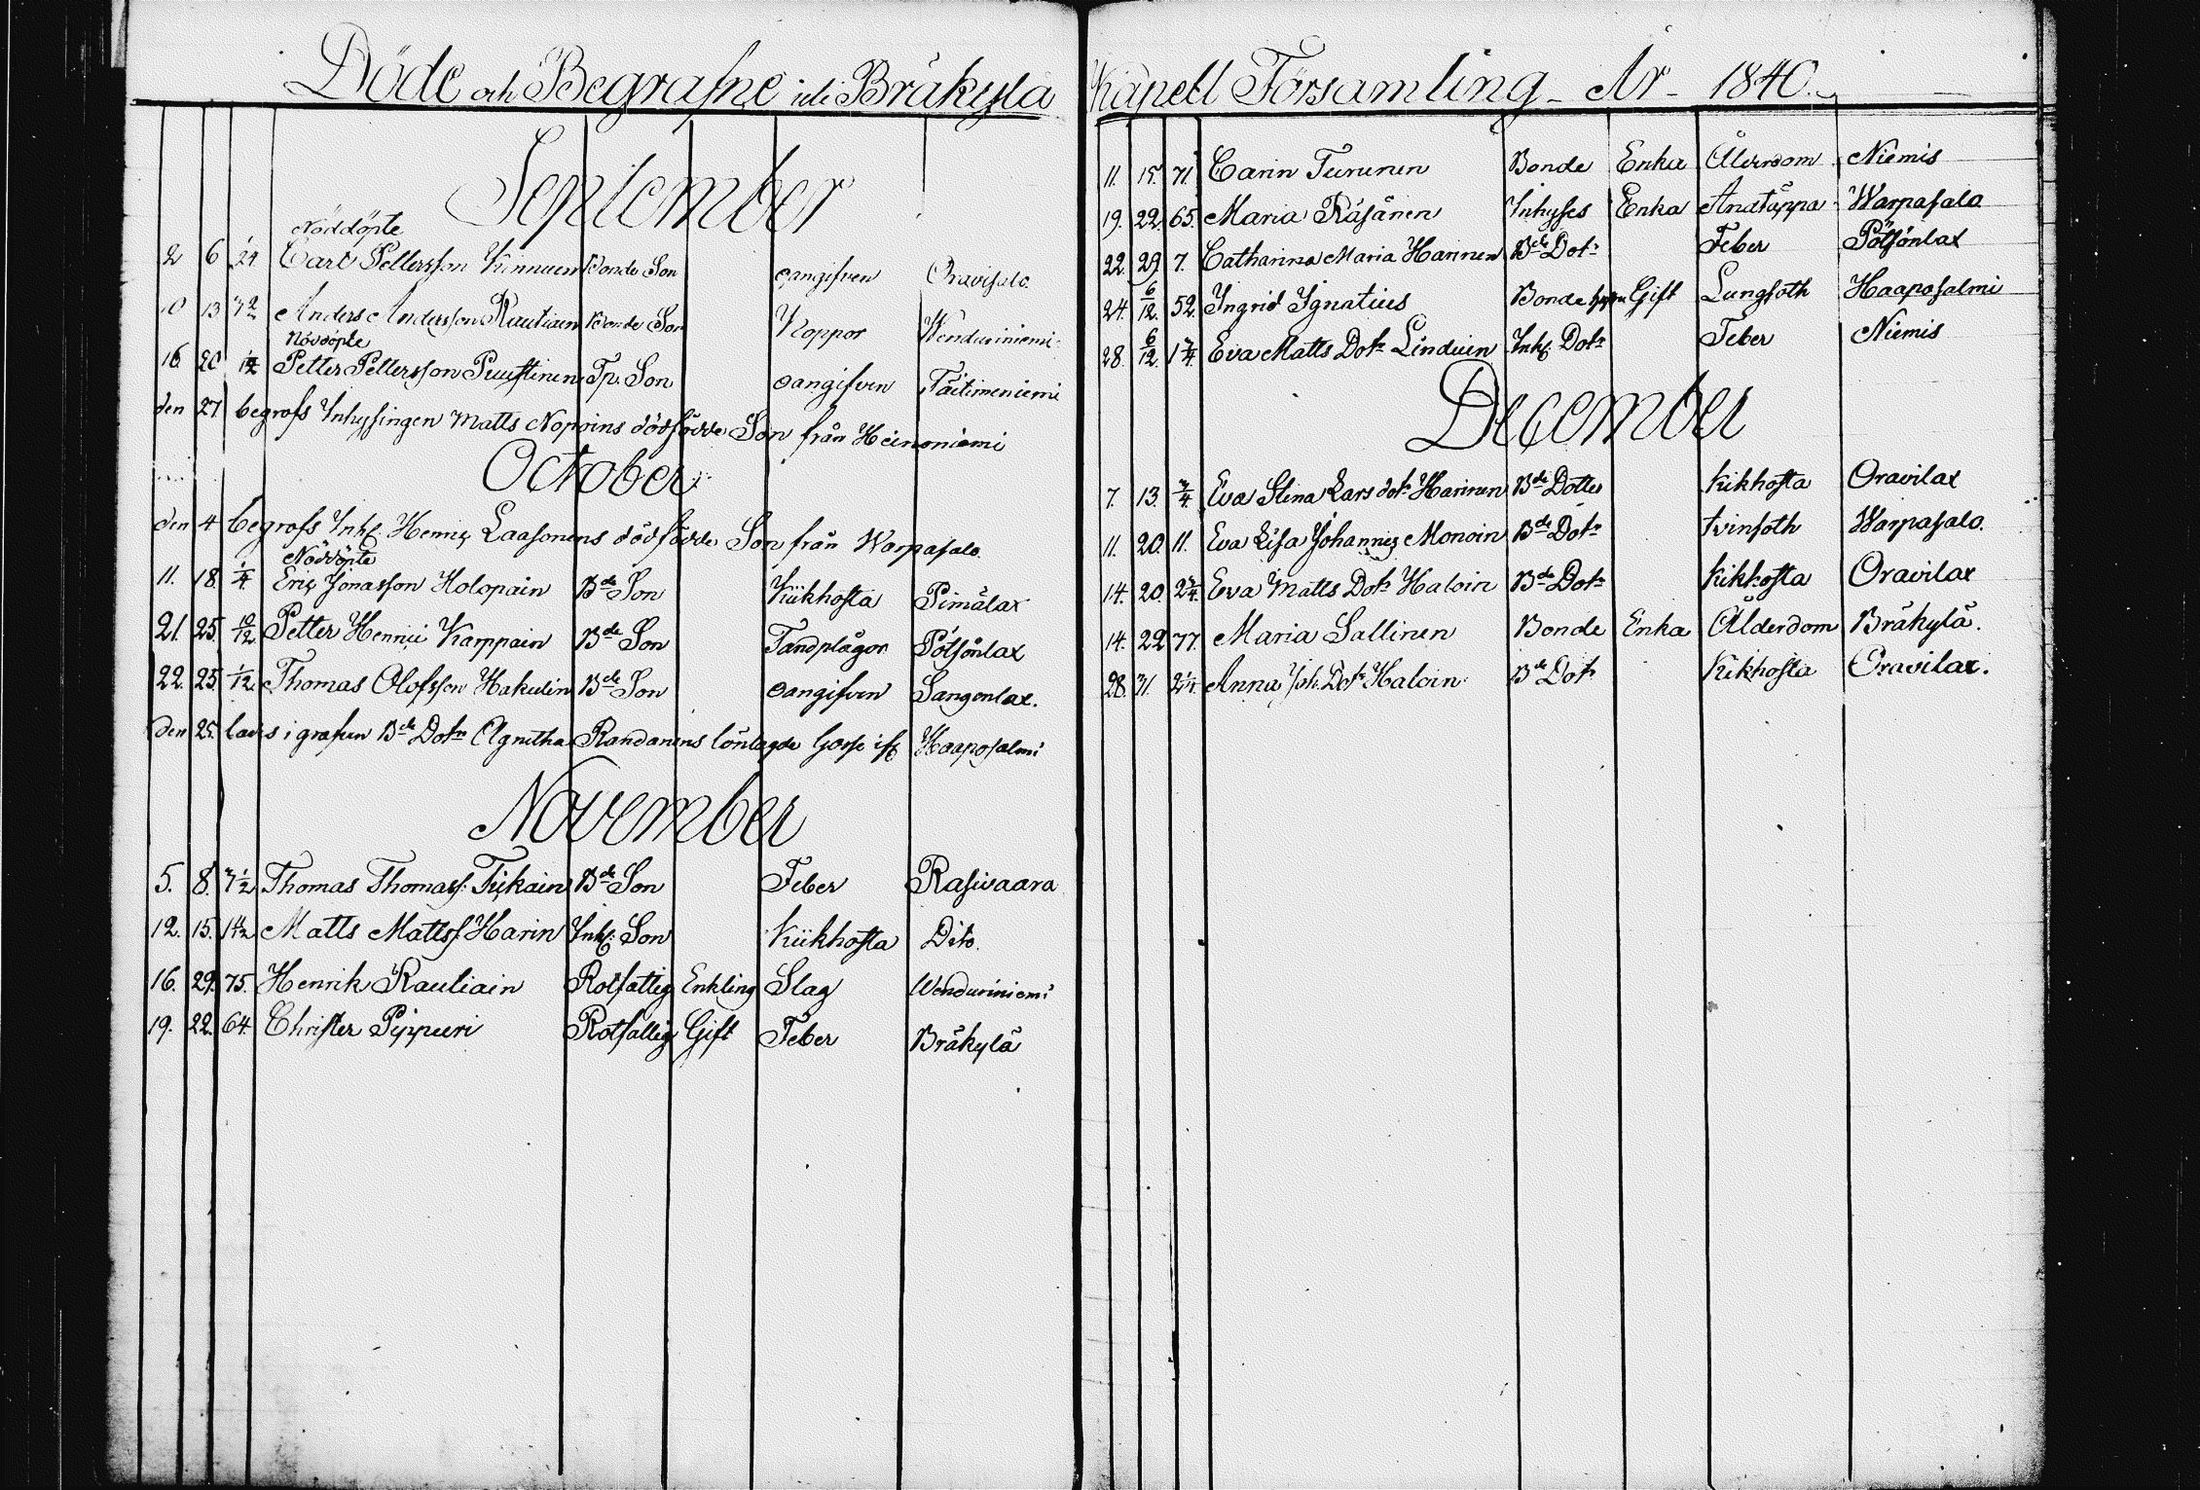 Döde och Begrafne uti Bräkylä Kapell Församling År 1840.
September
Nöddöpte
2 6 1/24 Carl Pettersson Kinnuen Bonde Son oangifven Oravisalo.
10 13 3 1/2 Anders Andersson Rautiain Bonde Son Koppor Wenduriniemi
Nöddöpte
16. 20 Petter Pettersson Puustinen Tp. Son oangifven
den 27 begrofs Inhysingen Matts Nopoins dödfödde Son från Heinoniemi
October
den 4 begrofs Inhs. Henric Laasonens dödfödde Son från Warpasalo
Nöddöpte
11. 18. 1/4 Eric Jonasson Holopain Bde Son Kikhosta Pimälax
21. 25. 10/12 Petter Henrici Karppain Bde Son Tandplågor Pötsönlax
22. 25 1/12 Thomas Olofsson Hakulin Bde Son oangifven Sangenlax.
den 25. lades i grafven Bde Dotr Agnetha Randanens lönlagde Gosse ifr. Haaposalmi
November
5. 8. 3 1/2 Thomas Thomass. Tickain Bde Son Feber Rasivaara
12. 15. Matts Mattss. Harin Inhs. Son Kikhosta Dito.
16. 29. 75. Henrik Rautiain Rotfattig Enkling Slag Wenduriniemi
19. 22. 64. Christer Pippuri Rotfattig Gift Feber Bräkylä
11. 15. 71. Carin Turunen Bonde Enka Ålerdom Niemis
19. 22. 65. Maria Räsänen Inhyses Enka Andtäppa Warpasalo
22. 29. 7. Catharina Maria Harinen Bde Dotr Feber Pötsönlax
24. 6/12. 52. Ingrid Ignatius Bonde Gift Lungsoth Haaposalmi
28. 6/12. 1 3/4. Eva Matts Dotr Linduin Inhs. Dotr Feber Niemis
December
7. 13. 3/4. Eva Stina Lars dotr Harinen Bde Dotter Kikhosta Oravilax
11. 20. 11. Eva Lisa Johannis Monoin Bde Dotr tvinsoth Warpasalo.
14. 20. 2 3/4. Eva Matts Dotr Haloin Bde Dotr Kikhosta Oravilax
14. 22. 77. Maria Sallinen Bonde Enka Ålderdom Bräkylä.
28. 31. 2 1/4. Anna Joh. Dotr Haloin Bde Dotr Kikhosta Oravilax.